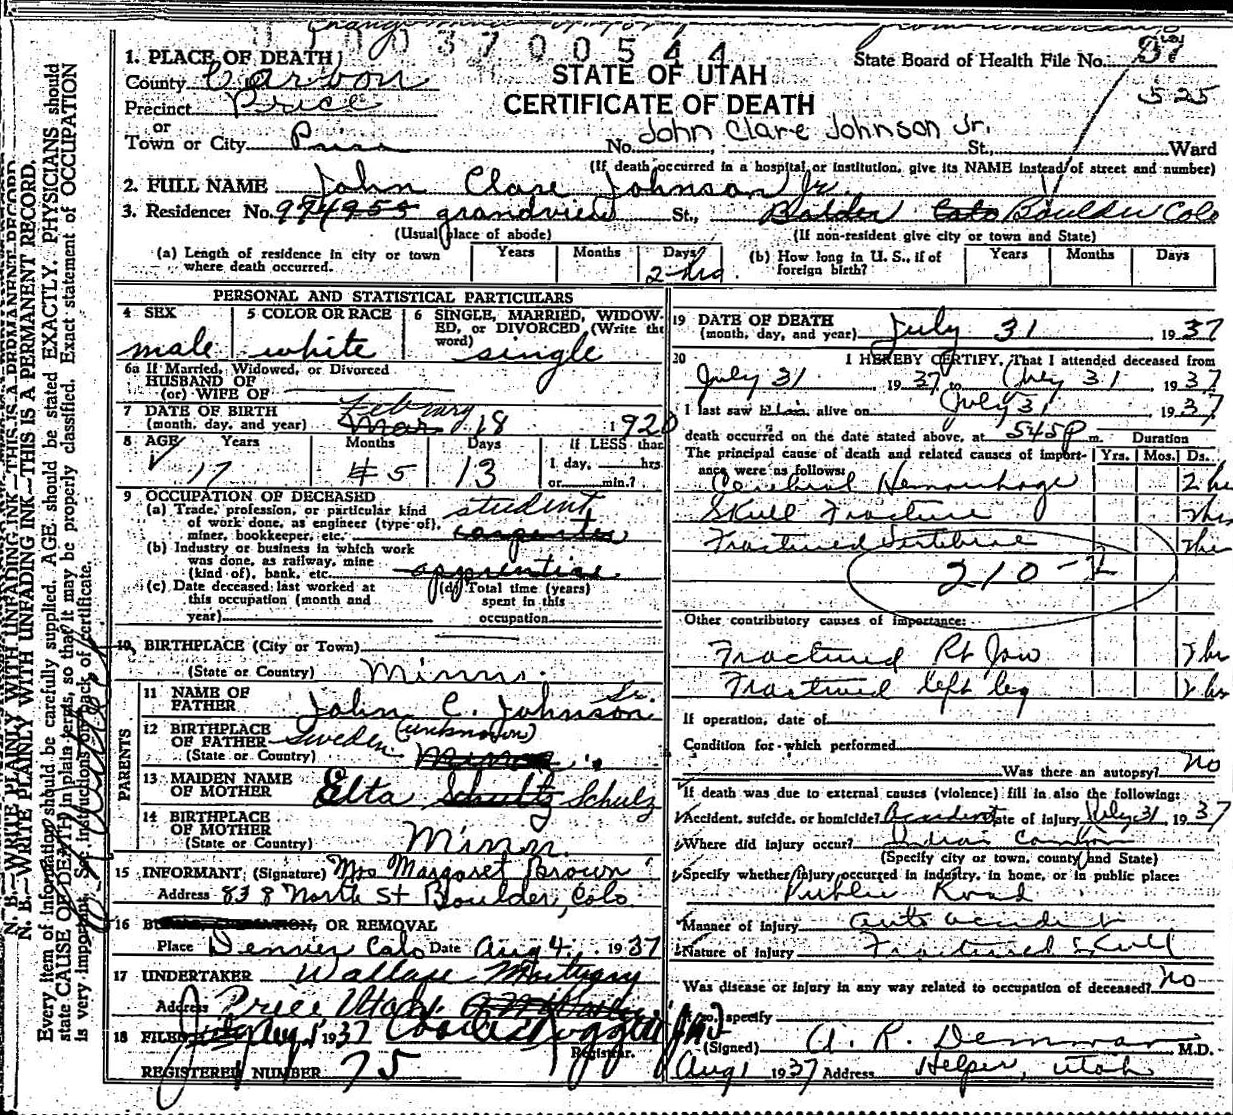 003700544
1. PLACE OF DEATH
County Carbon
Precinct Price
or
Town or City Price
STATE OF UTAH
CERTIFICATE OF DEATH
State Board of Health File No. 37
525
No. John Clare Johnson Jr. St., Ward
(If death occurred in a hospital or institution, give its NAME instead of street and number)
2. FULL NAME John Clare Johnson Jr.
3. Residence: No. 994 955 grandview St., Balder Colo Boulder Colo
(Usual place of abode)
(If non-resident give city or town and State)
(a) Length of residence in city or town where death occurred. Years Months Days 2 hrs.
(b) How long in U. S., if of foreign birth? Years Months Days
PERSONAL AND STATISTICAL PARTICULARS
4 SEX male
5 COLOR OR RACE white
6 SINGLE, MARRIED, WIDOWED, or DIVORCED (Write the word) single
6a If Married, Widowed, or Divorced
HUSBAND OF
(or) WIFE OF
7 DATE OF BIRTH
(month, day, and year) February Mar 18 1920
8 AGE Years 17 Months 5 Days 13
If LESS than
1 day, hrs
or min.?
9 OCCUPATION OF DECEASED
(a) Trade, profession, or particular kind
of work done, as engineer (type of),
miner, bookkeeper, etc. student carpenter
(b) Industry or business in which work
was done, as railway, mine
(kind of), bank, etc. apprentice
(c) Date deceased last worked at
this occupation (month and
year)
(d) Total time (years)
spent in this
occupation
10 BIRTHPLACE (City or Town)
(State or Country) Minn.
PARENTS
11 NAME OF FATHER John C. Johnson Sr.
12 BIRTHPLACE OF FATHER
(State or Country) Sweden (unknown)
13 MAIDEN NAME OF MOTHER Elta Schultz Schulz
14 BIRTHPLACE OF MOTHER
(State or Country) Minn.
15 INFORMANT (Signature) Mrs Margaret Brown
Address 838 North St Boulder, Colo.
16 OR REMOVAL
Place Denver Colo Date Aug 4. 1937
17 UNDERTAKER Wallace Mortuary
Address Price Utah.
18 FILED Aug 1 1937
Registrar.
REGISTERED NUMBER 75
19 DATE OF DEATH
(month, day, and year) July 31 1937
20 I HEREBY CERTIFY, That I attended deceased from
July 31, 1937 to July 31 1937
I last saw him alive on July 31, 1937
death occurred on the date stated above, at 545 P m. Duration
The principal cause of death and related causes of importance were as follows: Yrs. Mos. Ds.
Cerebral Hemorrhage 2 hr
Skull Fracture 2hrs
Fractured Vertebrae
210-
Other contributory causes of importance:
Fractured Rt Jaw 2 hr
Fractured left leg 2 hrs
If operation, date of
Condition for which performed
Was there an autopsy? no
If death was due to external causes (violence) fill in also the following:
Accident, suicide, or homicide? Accident Date of injury July 31, 1937
Where did injury occur? Indian Canyon
(Specify city or town, county and State)
Specify whether injury occurred in industry, in home, or in public place:
Public Road
Manner of injury auto accident
Nature of injury Fractured Skull
Was disease or injury in any way related to occupation of deceased? no
If so, specify
(Signed) A. R. Demman M.D.
Aug 1 1937 Address Helper, Utah
N. B.—WRITE PLAINLY WITH UNFADING INK—THIS IS A PERMANENT RECORD.
Every item of information should be carefully supplied. AGE should be stated EXACTLY. PHYSICIANS should
state CAUSE OF DEATH in plain terms, so that it may be properly classified. Exact statement of OCCUPATION
is very important. See instructions on back of certificate.